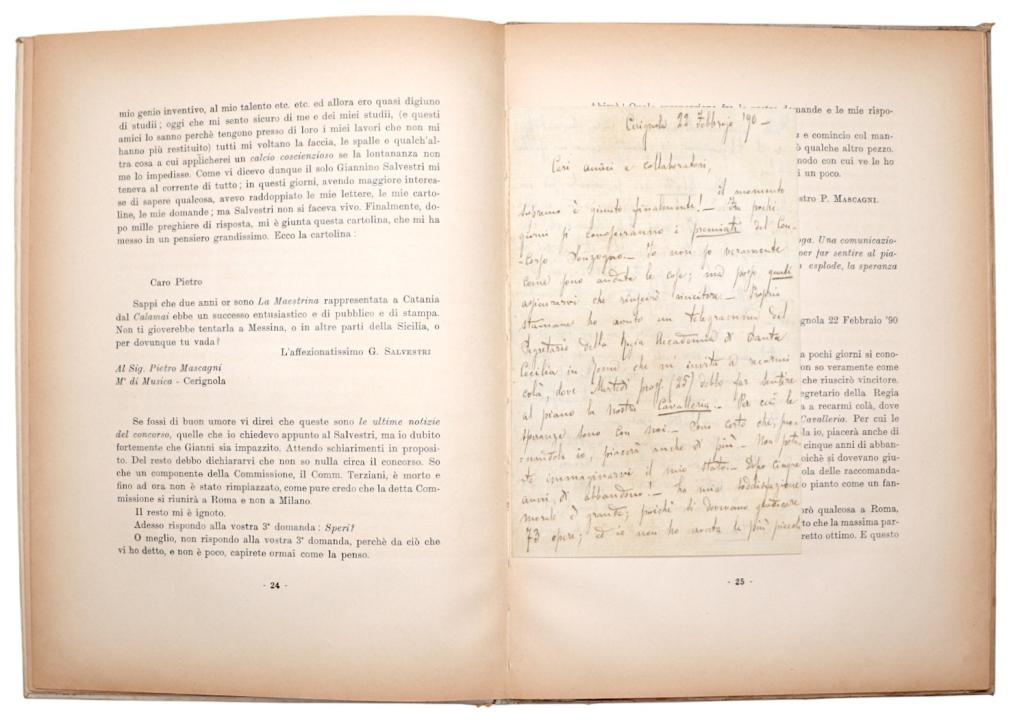 mio genio inventivo, al mio talento etc. etc. ed allora ero quasi digiuno
di studii; oggi che mi sento sicuro di me e dei miei studii, (e questi
amici lo sanno perchè tengono presso di loro i miei lavori che non mi
hanno più restituito) tutti mi voltano la faccia, le spalle e qualch'al-
tra cosa a cui applicherei un calcio coscienzioso se la lontananza non
me lo impedisse. Come vi dicevo dunque il solo Giannino Salvestri mi
teneva al corrente di tutto; in questi giorni, avendo maggiore interes-
se di sapere qualcosa, avevo raddoppiato le mie lettere, le mie carto-
line, le mie domande; ma Salvestri non si faceva vivo. Finalmente, do-
po mille preghiere di risposta, mi è giunta questa cartolina, che mi ha
messo in un pensiero grandissimo. Ecco la cartolina:
Caro Pietro
Sappi che due anni or sono La Maestrina rappresentata a Catania
dal Calamai ebbe un successo entusiastico e di pubblico e di stampa.
Non ti gioverebbe tentarla a Messina, o in altre parti della Sicilia, o
per dovunque tu vada?
L'affezionatissimo G. SALVESTRI
Al Sig. Pietro Mascagni
Mº di Musica - Cerignola
Se fossi di buon umore vi direi che queste sono le ultime notizie
del concorso, quelle che io chiedevo appunto al Salvestri, ma io dubito
fortemente che Gianni sia impazzito. Attendo schiarimenti in proposi-
to. Del resto debbo dichiararvi che non so nulla circa il concorso. So
che un componente della Commissione, il Comm. Terziani, è morto e
fino ad ora non è stato rimpiazzato, come pure credo che la detta Com-
missione si riunirà a Roma e non a Milano.
Il resto mi è ignoto.
Adesso rispondo alla vostra 3ª domanda: Speri?
O meglio, non rispondo alla vostra 3ª domanda, perchè da ciò che
vi ho detto, e non è poco, capirete ormai come la penso.
- 24 -
Cerignola 22 Febbrajo '90 -
Cari amici e collaboratori,
il momento
supremo è giunto finalmente! - Fra pochi
giorni si conosceranno i premiati del Con-
-corso Sonzogno. - Io non so veramente
come sono andate le cose; ma posso quasi
assicurarvi che riuscirò vincitore. - Proprio
stamane ho avuto un telegramma del
Segretario della Regia Accademia di Santa
Cecilia in Roma che m'invita a recarmi
colà, dove Martedì pross. (25) debbo far sentire
al piano la nostra Cavalleria. - Per cui le
speranze sono con noi. - Sono certo che, suo-
nandola io, piacerà anche di più. - Non pote-
te immaginarvi il mio stato. - Dopo cinque
anni di abbandono! - La mia soddisfazione
morale è grande, poichè si dovevano giudicare
73 opere; ed io non ho avuta la più piccola
mande e le mie rispo-
e comincio col man-
ò qualche altro pezzo.
nodo con cui ve le ho
i un poco.
stro P. MASCAGNI.
oga. Una comunicazio-
per far sentire al pia-
esplode, la speranza
gnola 22 Febbraio '90
a pochi giorni si cono-
on so veramente come
che riuscirò vincitore.
egretario della Regia
a a recarmi colà, dove
Cavalleria. Per cui le
la io, piacerà anche di
cinque anni di abban-
oichè si dovevano giu-
ola delle raccomanda-
o pianto come un fan-
rò qualcosa a Roma,
to che la massima par-
retto ottimo. E questo
- 25 -